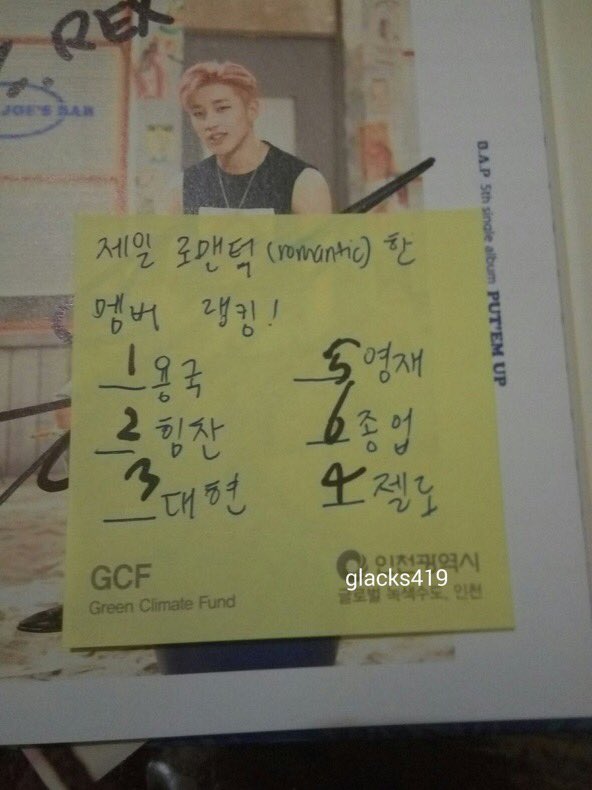 REX
JOE'S BAR
B.A.P 5th single album PUT'EM UP
제일 로맨틱 (romantic) 한
멤버 랩킹!
1 용국
5 영재
2 힘찬
6 종업
3 대현
4 젤로
GCF
Green Climate Fund
인천광역시
glacks419
글로벌 녹색수도, 인천